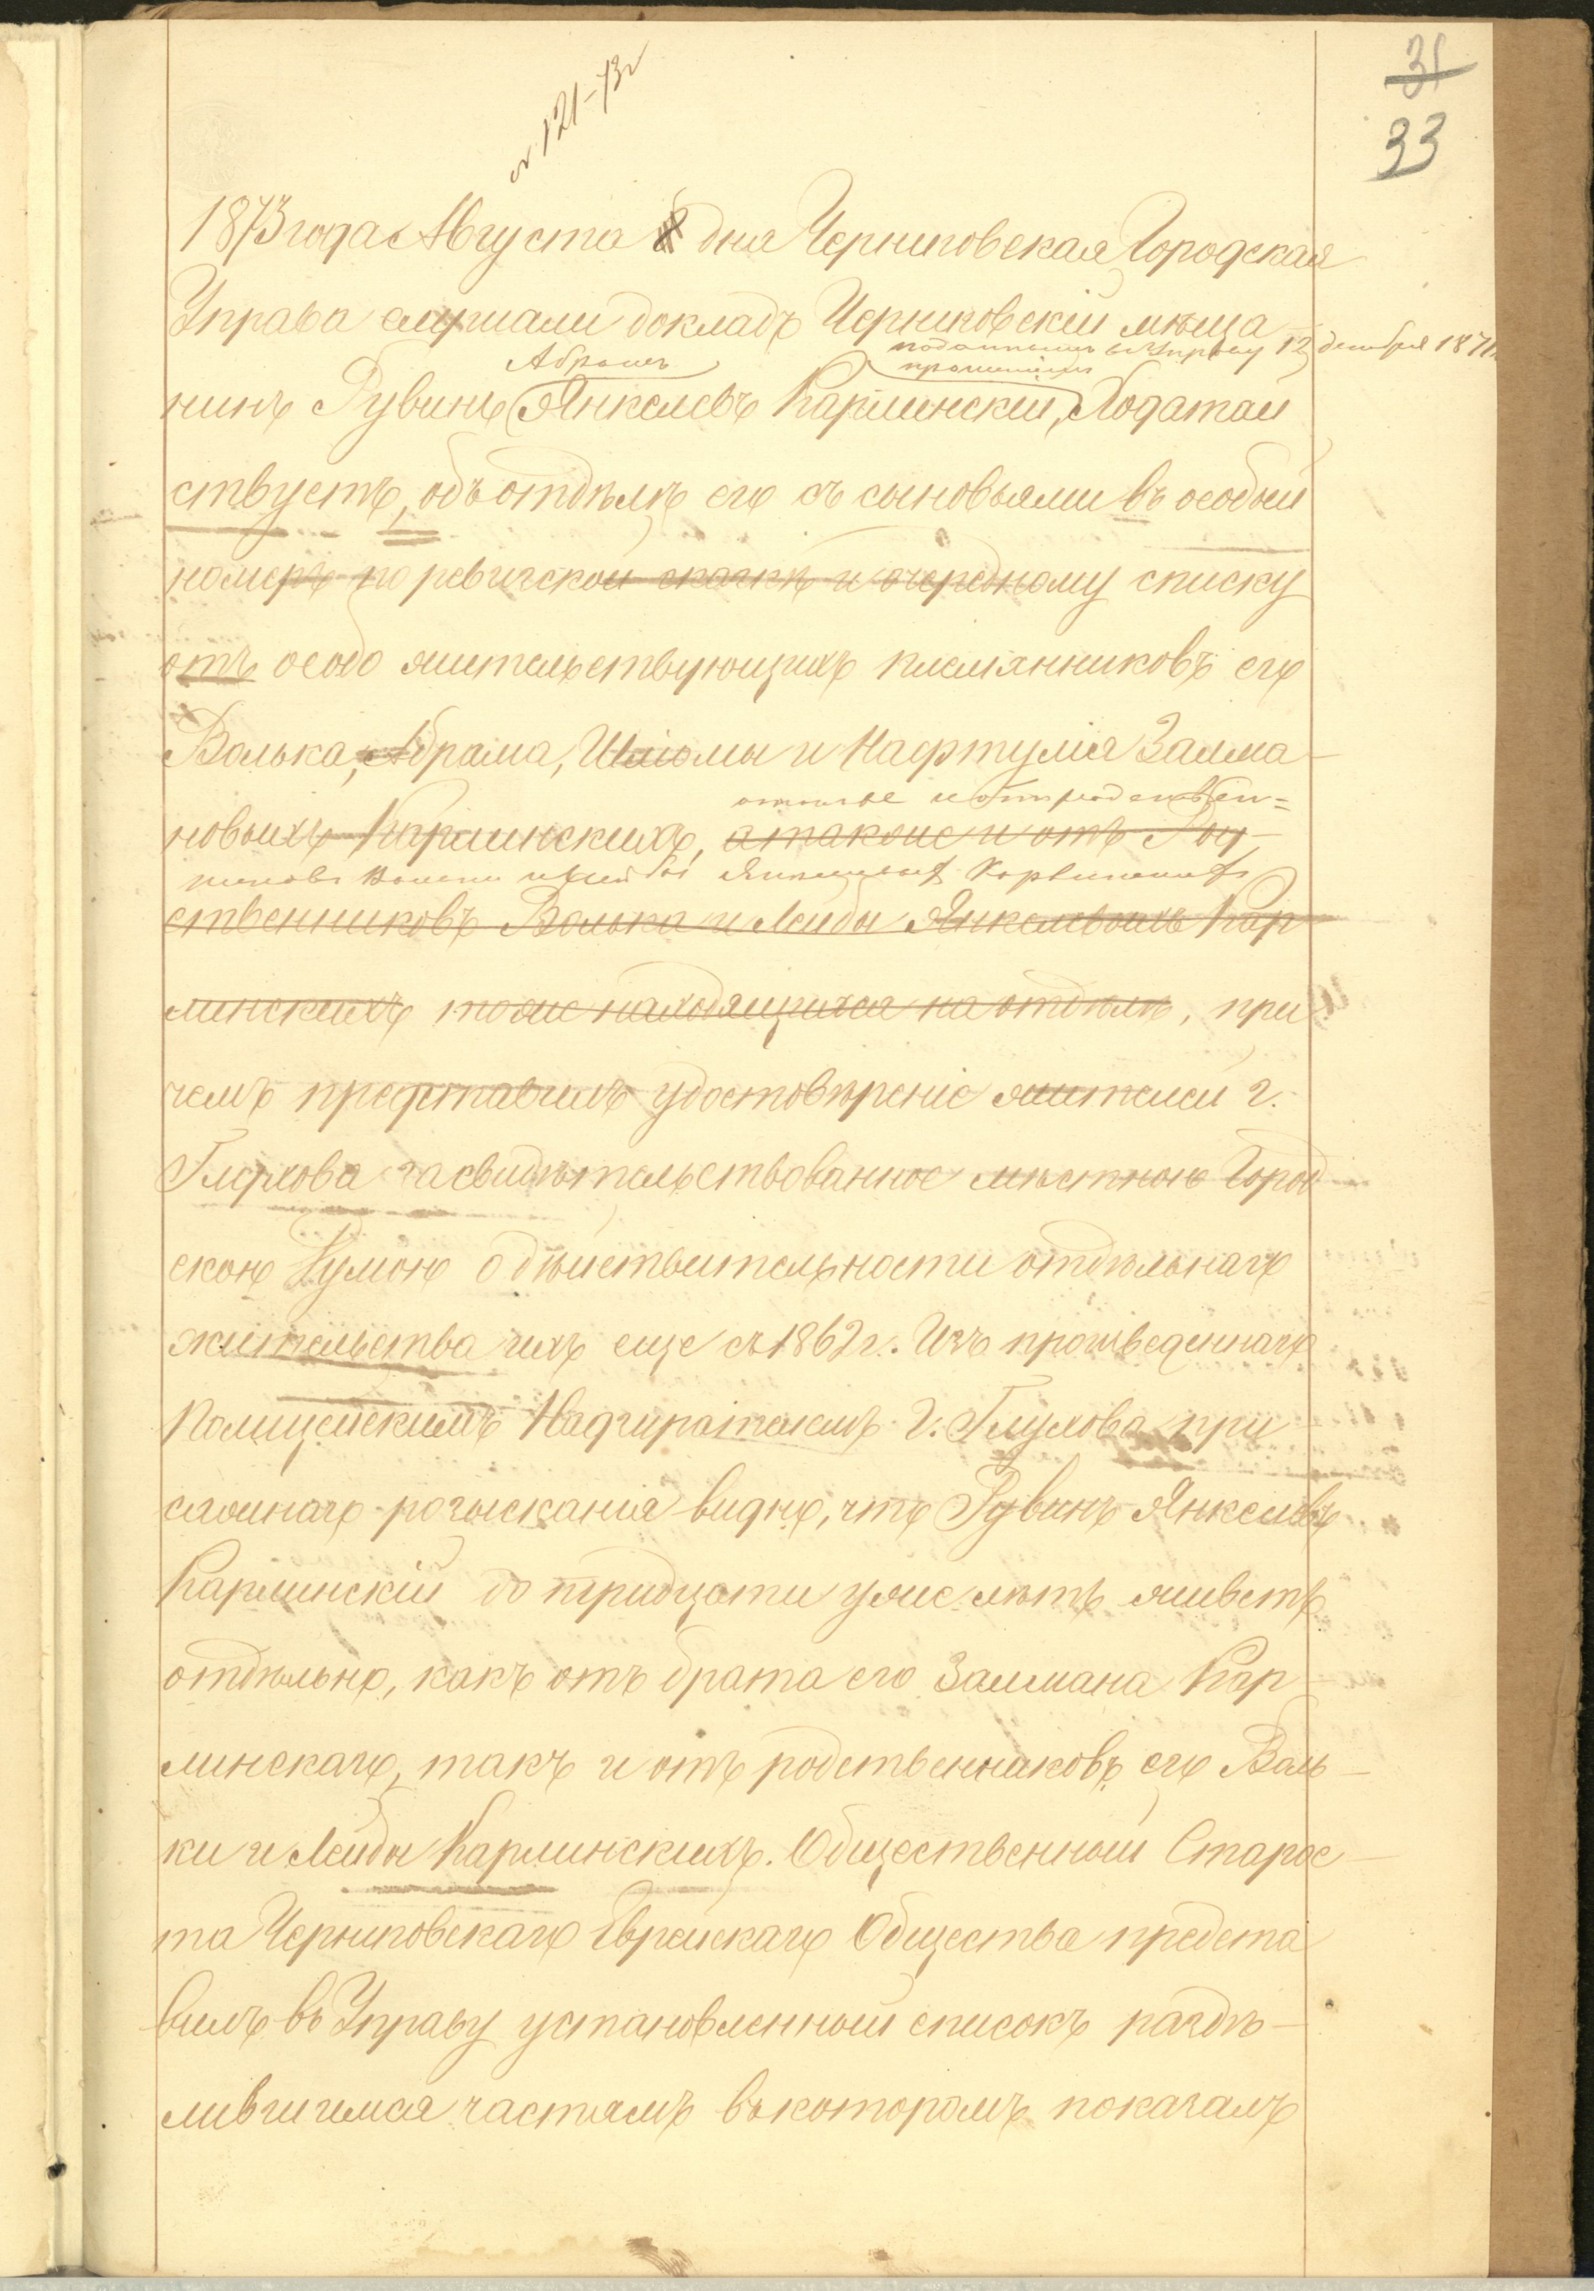 31
33
№ 121-73 г
1873 года Августа 8 дня Черниговская Городская
Управа слушали докладъ Черниговскій мѣща
поданнымъ въ Управу 12 декабря 1871
Абрамъ прошеніемъ
нинъ Рувинъ Янкелевъ Карлинскій, Ходатай
ствуетъ, объ отдѣлѣ его съ сыновьями въ особый
номеръ по ревизской сказкѣ и очередному списку
отъ особо жительствующихъ племянниковъ его
Валька, Абрама, Шломы и Нафтулія Залма
новыхъ Карлинскихъ, а также и отъ Род
ственниковъ Валька и Лейбы Янкелевыхъ Кар
линскихъ тоже находящихся на отдѣлѣ, при
чемъ представилъ удостовѣреніе жителей г.
Глухова засвидѣтельствованное мѣстною Город
скою Думою о дѣйствительности отдѣльнаго
жительства ихъ еще съ 1862 г. Изъ произведеннаго
Полицейскимъ Надзирателемъ г. Глухова при
сяжнаго розысканія видно, что Рувинъ Янкелевъ
Карлинскій до тридцати уже лѣтъ живетъ
отдѣльно, какъ отъ брата его Залмана Кар
линскаго, такъ и отъ родственниковъ его Валь
ки и Лейбы Карлинскихъ. Общественный Старос
та Черниговскаго Еврейскаго Общества предста
вилъ въ Управу установленный списокъ раздѣ
лившимся частямъ въ которомъ показалъ